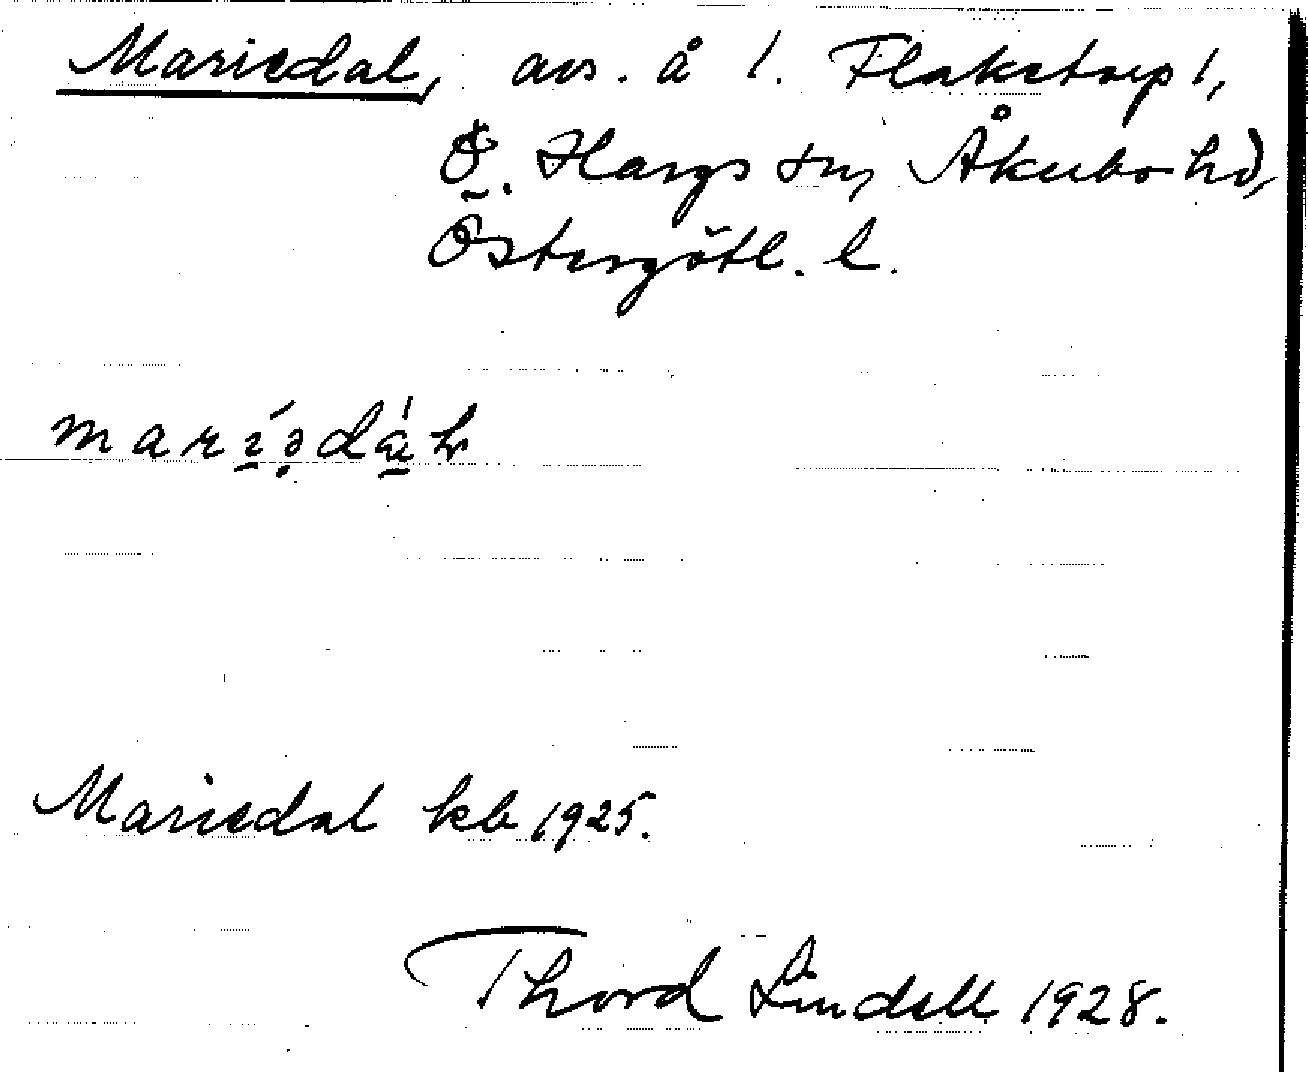 Mariedal, avs. å 1. Flakstorp 1,
Ö. Hargs sn, Åkerbo hd,
Östergötl. l.
Mariedal kb 1925.
Thord Lindell 1928.